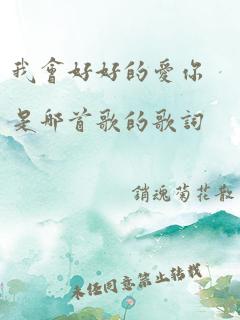 我會好好的愛你
是那首歌的歌詞
銷魂菊花散
未经同意禁止转载